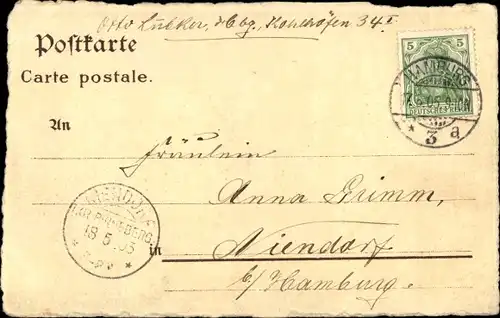 Otto Lübker, Hbg, Kohlhöfen 34 I
Postkarte
Carte postale.
5
DEUTSCHES REICH
HAMBURG
* 3 a
An
Fräulein
Anna Grimm,
NIENDORF
18 5 03
in Niendorf
b/ Hamburg.